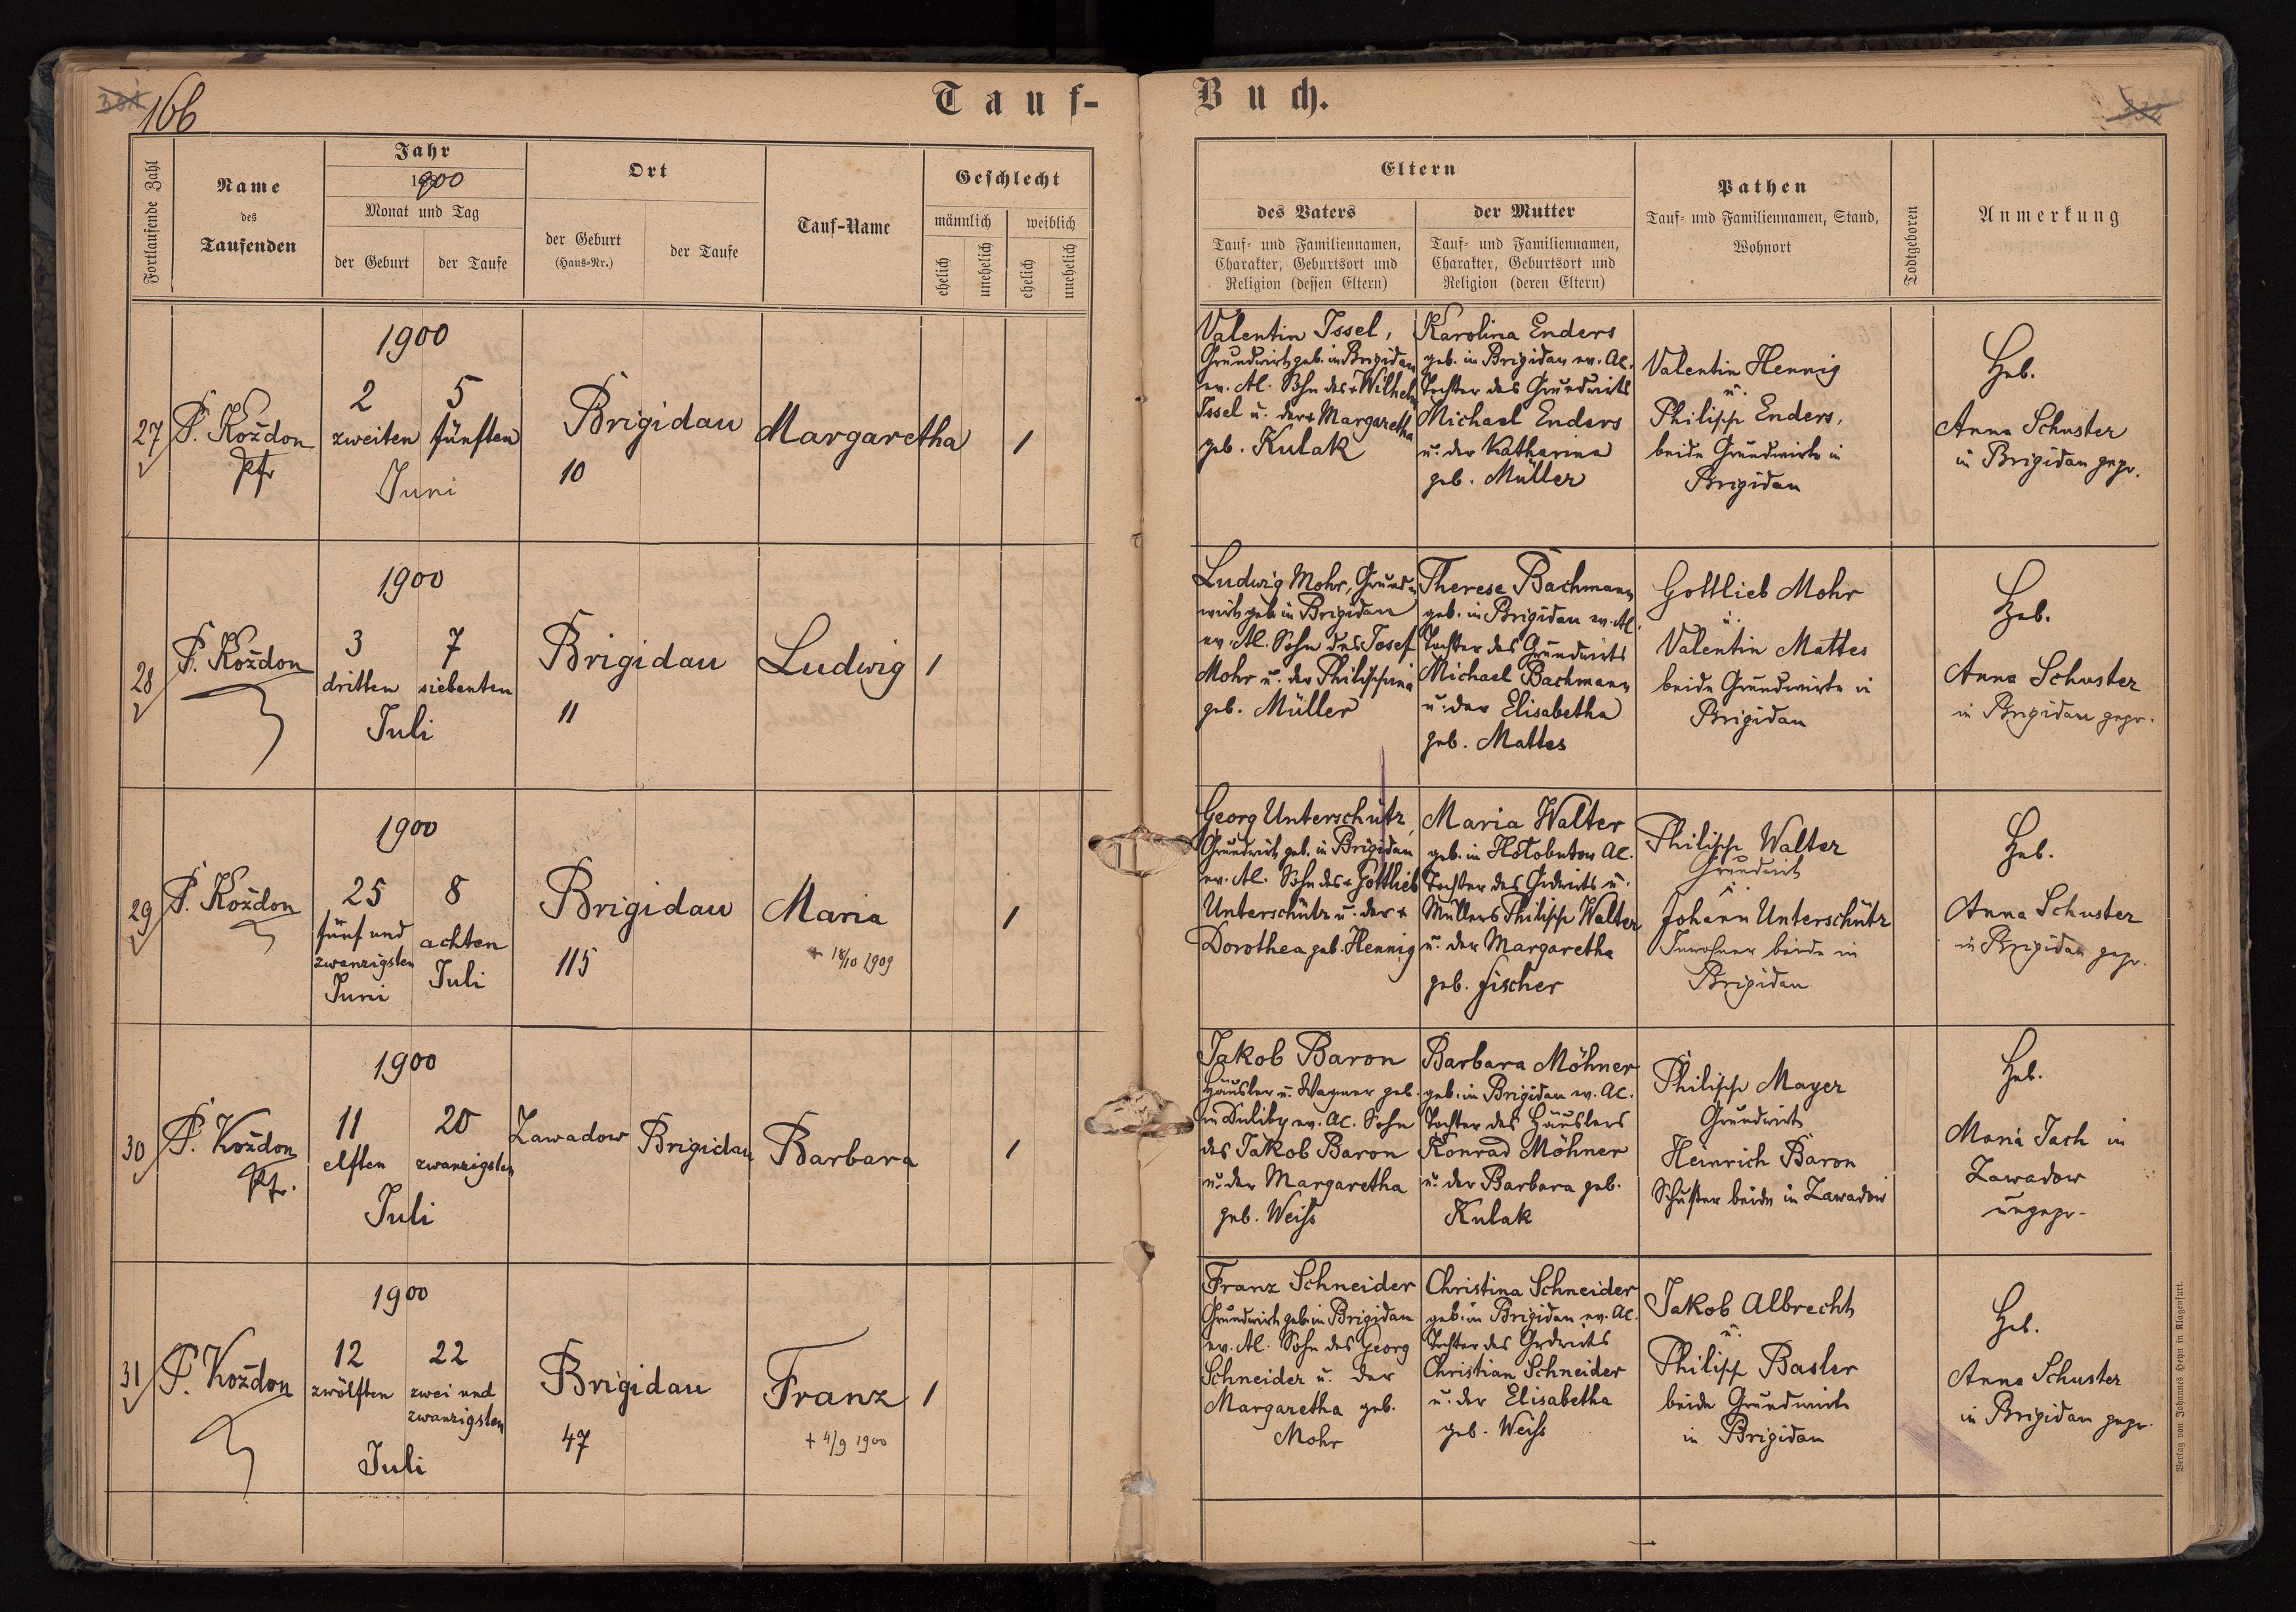 166
Tauf-
Buch.
Fortlaufende Zahl
Name
des
Taufenden
Jahr
1900
Monat und Tag
der Geburt
der Taufe
Ort
der Geburt
(Haus-Nr.)
der Taufe
Tauf-Name
Geschlecht
männlich
weiblich
ehelich
unehelich
ehelich
unehelich
Eltern
des Vaters
Tauf- und Familiennamen,
Charakter, Geburtsort und
Religion (dessen Eltern)
der Mutter
Tauf- und Familiennamen,
Charakter, Geburtsort und
Religion (deren Eltern)
Pathen
Tauf- und Familiennamen, Stand,
Wohnort
Todtgeboren
Anmerkung
27
P. Koždon
Pfr
1900
2
zweiten
5
fünften
Juni
Brigidau
10
Margaretha
1
Valentin Issel,
Grundwirt geb. in Brigidau
ev. Al. Sohn des + Wilhelm
Issel u. der + Margaretha
geb. Kulak
Karolina Enders
geb. in Brigidau ev. Al.
Tochter des Grundwirts
Michael Enders
u. der Katharina
geb. Müller
Valentin Hennig
u.
Philipp Enders,
beide Grundwirte in
Brigidau
Heb.
Anna Schuster
in Brigidau gepr.
28
P. Koždon
1900
3
dritten
7
siebenten
Juli
Brigidau
11
Ludwig
1
Ludwig Mohr, Grund-
wirt geb. in Brigidau
ev. Al. Sohn des Josef
Mohr u. der Philippina
geb. Müller
Therese Bachmann
geb. in Brigidau ev. Al.
Tochter des Grundwirts
Michael Bachmann
u. der Elisabetha
geb. Mattes
Gottlieb Mohr
u.
Valentin Mattes
beide Grundwirte in
Brigidau
Heb.
Anna Schuster
in Brigidau gepr.
29
P. Koždon
1900
25
fünf und
zwanzigsten
Juni
8
achten
Juli
Brigidau
115
Maria
+ 18/10 1909
1
Georg Unterschütz,
Grundwirt geb. in Brigidau
ev. Al. Sohn des + Gottlieb
Unterschütz u. der +
Dorothea geb. Hennig
Maria Walter
geb. in Hołobutow Al.
Tochter des Grdwirts u.
Müllers Philipp Walter
u. der Margaretha
geb. Fischer
Philipp Walter
Grundwirt
u.
Johann Unterschütz
Inwohner beide in
Brigidau
Heb.
Anna Schuster
in Brigidau gepr.
30
P. Koždon
Pfr.
1900
11
elften
20
zwanzigsten
Juli
Zawadow
Brigidau
Barbara
1
Jakob Baron
Häusler u. Wagner geb.
in Duliby ev. Al. Sohn
des Jakob Baron
u. der Margaretha
geb. Weiss
Barbara Möhner
geb. in Brigidau ev. Al.
Tochter des Häuslers
Konrad Möhner
u. der Barbara geb.
Kulak
Philipp Mayer
Grundwirt
Heinrich Baron
Schuster beide in Zawadow
Heb.
Maria Jach in
Zawadow
ungepr.
31
P. Koždon
1900
12
zwölften
22
zwei und
zwanzigsten
Juli
Brigidau
47
Franz
+ 4/9 1900
1
Franz Schneider
Grundwirt geb. in Brigidau
ev. Al. Sohn des Georg
Schneider u. der
Margaretha geb.
Mohr
Christina Schneider
geb. in Brigidau ev. Al.
Tochter des Grdwirts
Christian Schneider
u. der Elisabetha
geb. Weiss
Jakob Albrecht
u.
Philipp Basler
beide Grundwirte
in Brigidau
Heb.
Anna Schuster
in Brigidau gepr.
Verlag von Johannes Heyn in Klagenfurt.